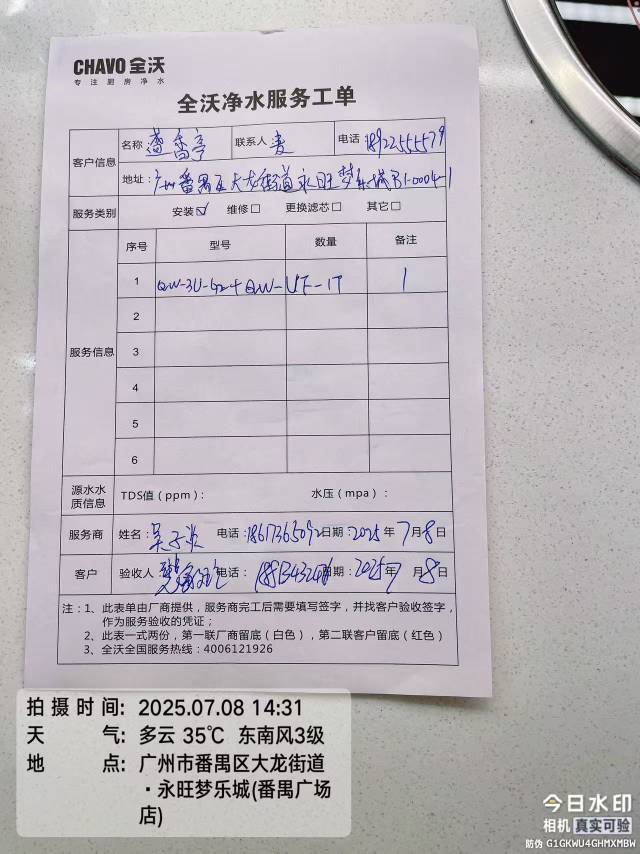 CHAVO 全沃
专注厨房净水
全沃净水服务工单
客户信息 名称 联系人 麦 电话 18922555579
地址：广州番禺区大龙街道永旺梦乐城B1-0004-1
服务类别 安装☑ 维修☐ 更换滤芯☐ 其它☐
服务信息 序号 型号 数量 备注
1 QW-3U-G2+QW-UF-1T 1
2
3
4
5
6
源水水质信息 TDS值（ppm）： 水压（mpa）：
服务商 姓名： 电话：18617365092 日期：2025年7月8日
客户 验收人 电话： 日期：2025年7月8日
注：1、此表单由厂商提供，服务商完工后需要填写签字，并找客户验收签字，
作为服务验收的凭证；
2、此表一式两份，第一联厂商留底（白色），第二联客户留底（红色）
3、全沃全国服务热线：4006121926
拍摄时间：2025.07.08 14:31
天 气：多云 35℃ 东南风3级
地 点：广州市番禺区大龙街道
·永旺梦乐城(番禺广场
店)
今日水印
相机 真实可验
防伪 G1GKWU4GHMXMBW